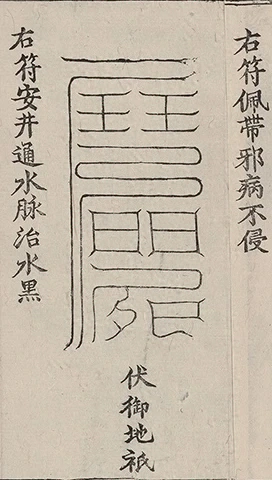 右符佩帶邪病不侵
伏御地祇
右符安井通水脉治水黑